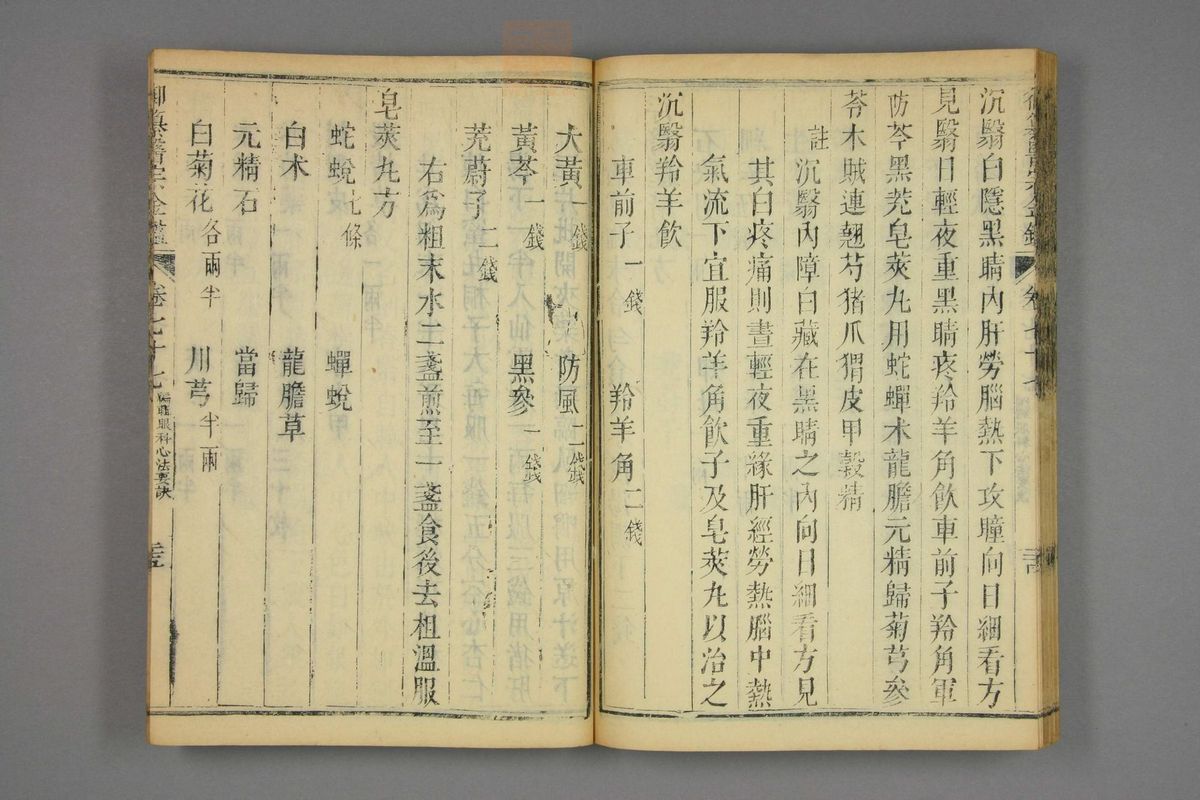 沉翳白隱黑睛內肝勞腦熱下攻瞳向日細看方
見翳日輕夜重黑睛疼羚羊角飲車前子羚角軍
防芩黑茺皂莢丸用蛇蟬朮龍膽元精歸菊芎參
苓木賊連翹芍豬爪猬皮甲穀精
註沉翳內障白藏在黑睛之內向日細看方見
其白疼痛則晝輕夜重緣肝經勞熱腦中熱
氣流下宜服羚羊角飲子及皂莢丸以治之
沉翳羚羊飲
車前子一錢 羚羊角二錢
大黃一錢 防風二錢
黃芩一錢 黑參一錢
茺蔚子二錢
右為粗末水二盞煎至一盞食後去柤溫服
皂莢丸方
蛇蛻七條 蟬蛻
白朮 龍膽草
元精石 當歸
白菊花各兩半 川芎半兩
御纂醫宗金鑑 卷七十七 編輯眼科心法要訣